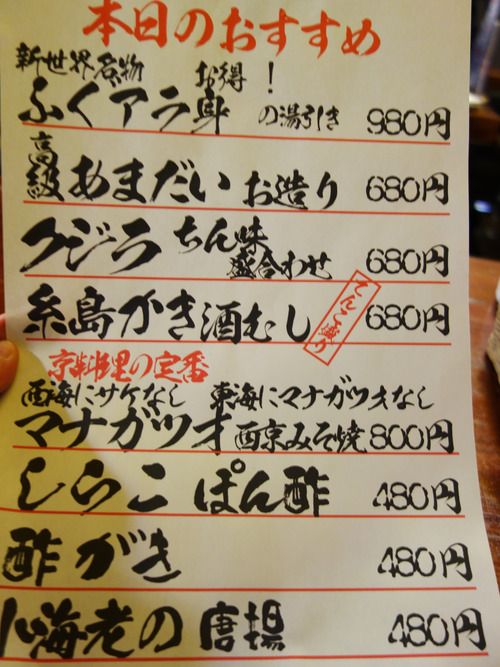 本日のおすすめ
新世界名物 お得！
ふくアラ身の湯引き 980円
高級あまだいお造り 680円
クジラちん味盛合わせ 680円
糸島かき酒むし てんこ盛り 680円
京料理の定番
西海にサケなし 東海にマナガツオなし
マナガツオ西京みそ焼 800円
しらこぽん酢 480円
酢がき 480円
小海老の唐揚 480円